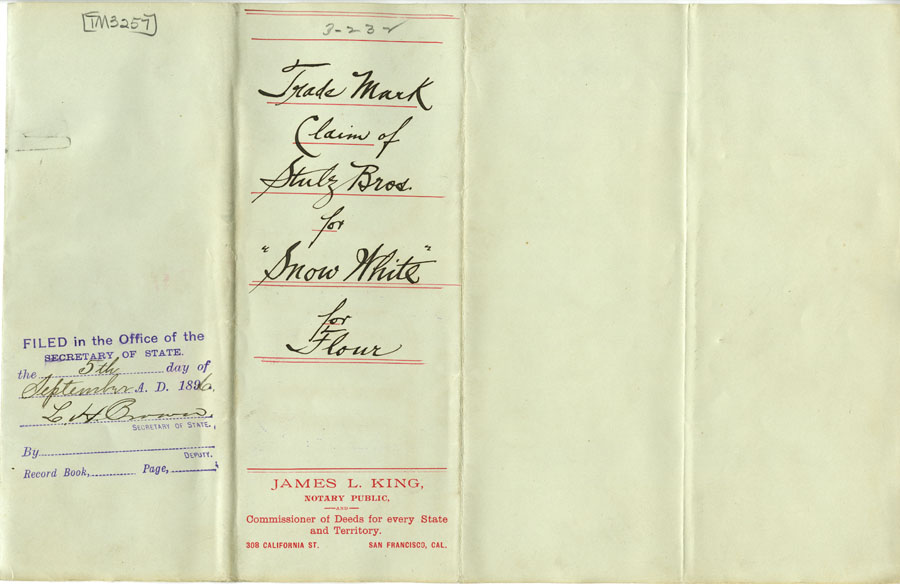 TM3257
FILED in the Office of the
SECRETARY OF STATE.
the 5th day of
September A. D. 1896.
L. H. Brown
SECRETARY OF STATE.
By
DEPUTY.
Record Book, Page,
3232
Trade Mark
Claim of
Stulz Bros.
for
"Snow White"
for
Flour
JAMES L. KING,
NOTARY PUBLIC,
AND
Commissioner of Deeds for every State
and Territory.
308 CALIFORNIA ST. SAN FRANCISCO, CAL.